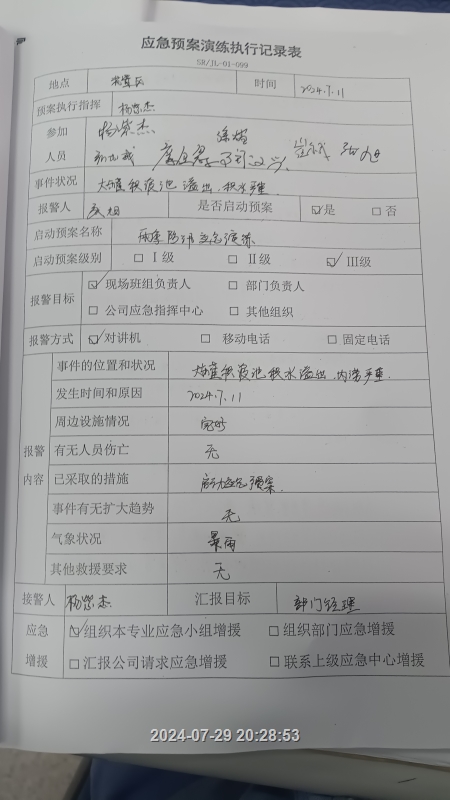 应急预案演练执行记录表
SR/JL-01-099
地点 时间 2024.7.11
预案执行指挥
参加
人员
事件状况 积液池溢出,积水严重.
报警人 是否启动预案 ☑是 □否
启动预案名称 雨季防汛应急演练
启动预案级别 □Ⅰ级 □Ⅱ级 ☑Ⅲ级
报警目标 ☑现场班组负责人 □部门负责人
□公司应急指挥中心 □其他组织
报警方式 ☑对讲机 □移动电话 □固定电话
报警内容
事件的位置和状况 积液池积水溢出,内涝严重.
发生时间和原因 2024.7.11
周边设施情况 完好
有无人员伤亡 无
已采取的措施 启动应急预案.
事件有无扩大趋势 无
气象状况 暴雨
其他救援要求 无
接警人 汇报目标 部门经理
应急 ☑组织本专业应急小组增援 □组织部门应急增援
增援 □汇报公司请求应急增援 □联系上级应急中心增援
2024-07-29 20:28:53